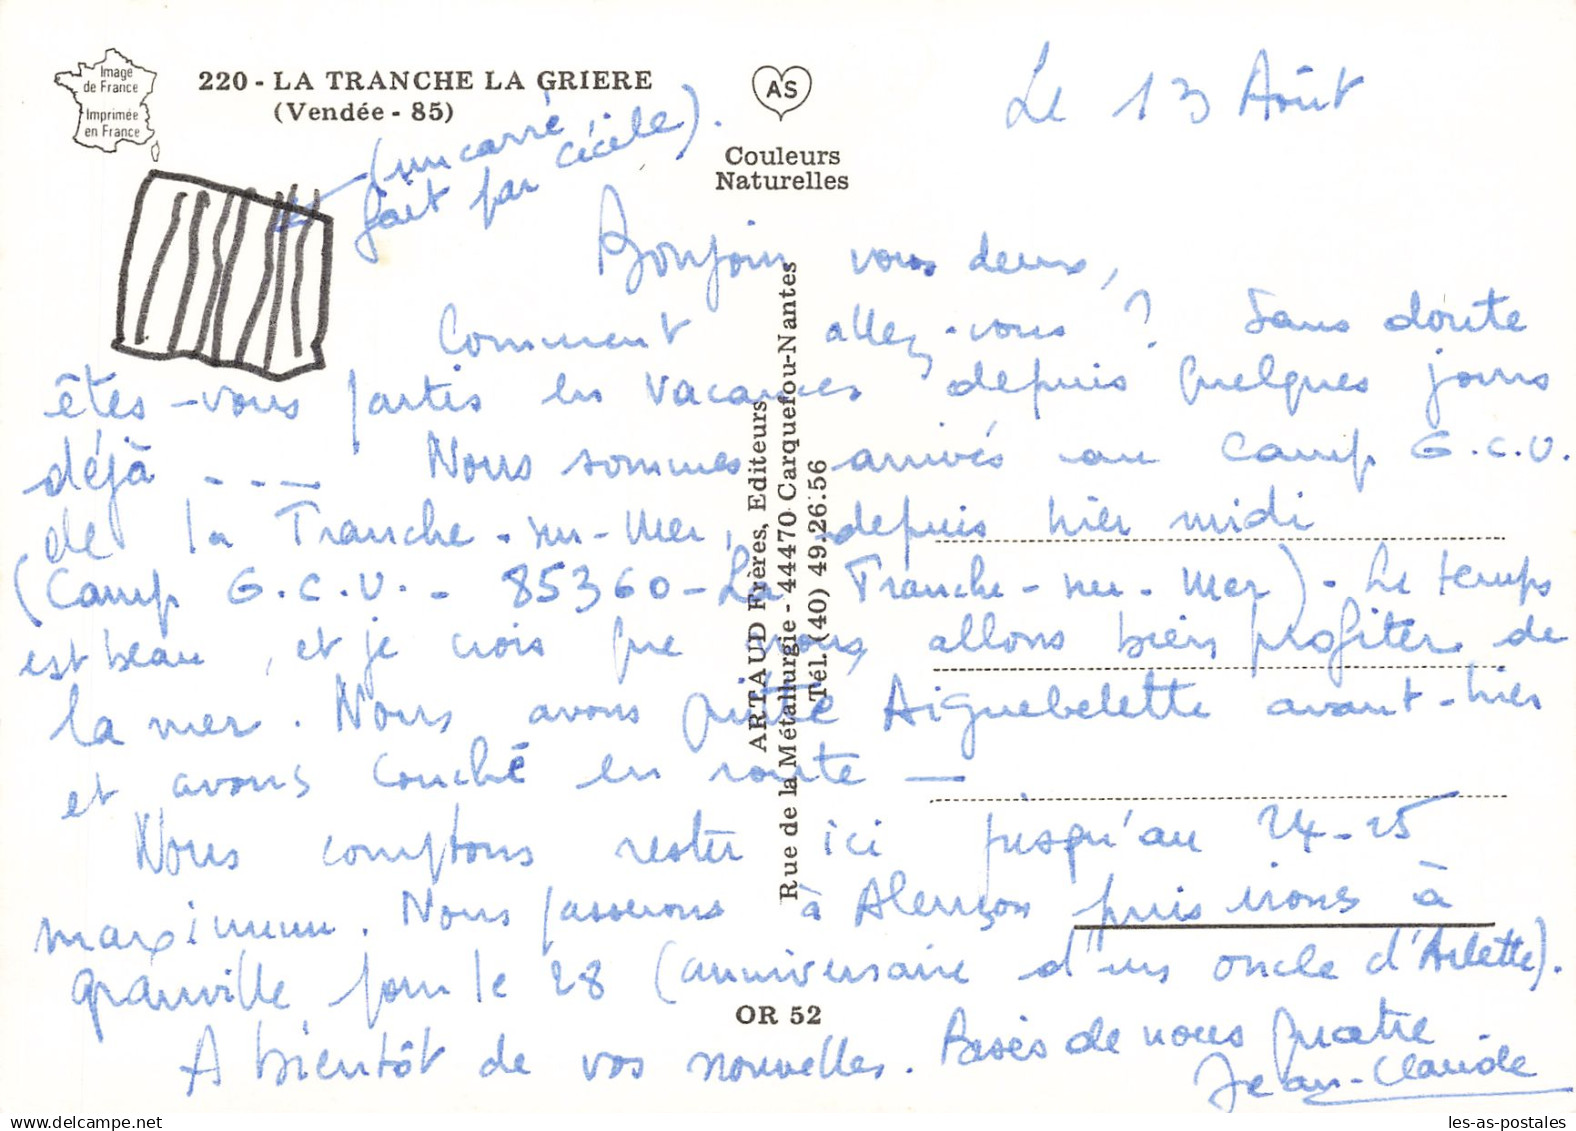 Image
de France
Imprimée
en France
220 - LA TRANCHE LA GRIERE
(Vendée - 85)
AS
Couleurs
Naturelles
Le 13 Août
(un carré
fait par Cécile).
Bonjour vous deux,
Comment allez-vous ? Sans doute
êtes-vous partis en vacances depuis quelques jours
déjà ---- Nous sommes arrivés au Camp G.C.U.
de la Tranche-sur-Mer, depuis hier midi
(Camp G.C.U. - 85360 - La Tranche-sur-Mer). Le temps
est beau, et je crois que nous allons bien profiter de
la mer. Nous avons quitté Aiguebelette avant-hier
et avons couché en route —
Nous comptons rester ici jusqu'au 24-25
maximum. Nous passerons à Alençon puis irons à
Granville pour le 28 (anniversaire d'un oncle d'Arlette).
A bientôt de vos nouvelles. Baisés de nous quatre
Jean-Claude
ARTAUD Frères, Editeurs
Rue de la Métallurgie - 44470 Carquefou-Nantes
Tél. (40) 49.26.56
OR 52
les-as-postales